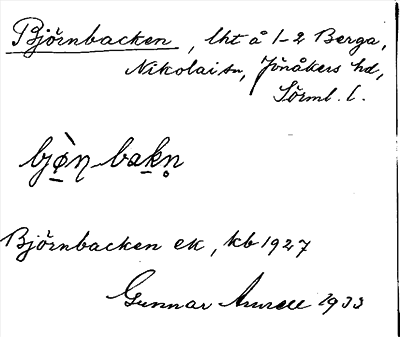 Björnbacken, lht å 1-2 Berga,
Nikolai sn, Jönåkers hd,
Sörml. l.
bjø̀ṇ bakn̥
Björnbacken ek, kb 1927
Gunnar 1933